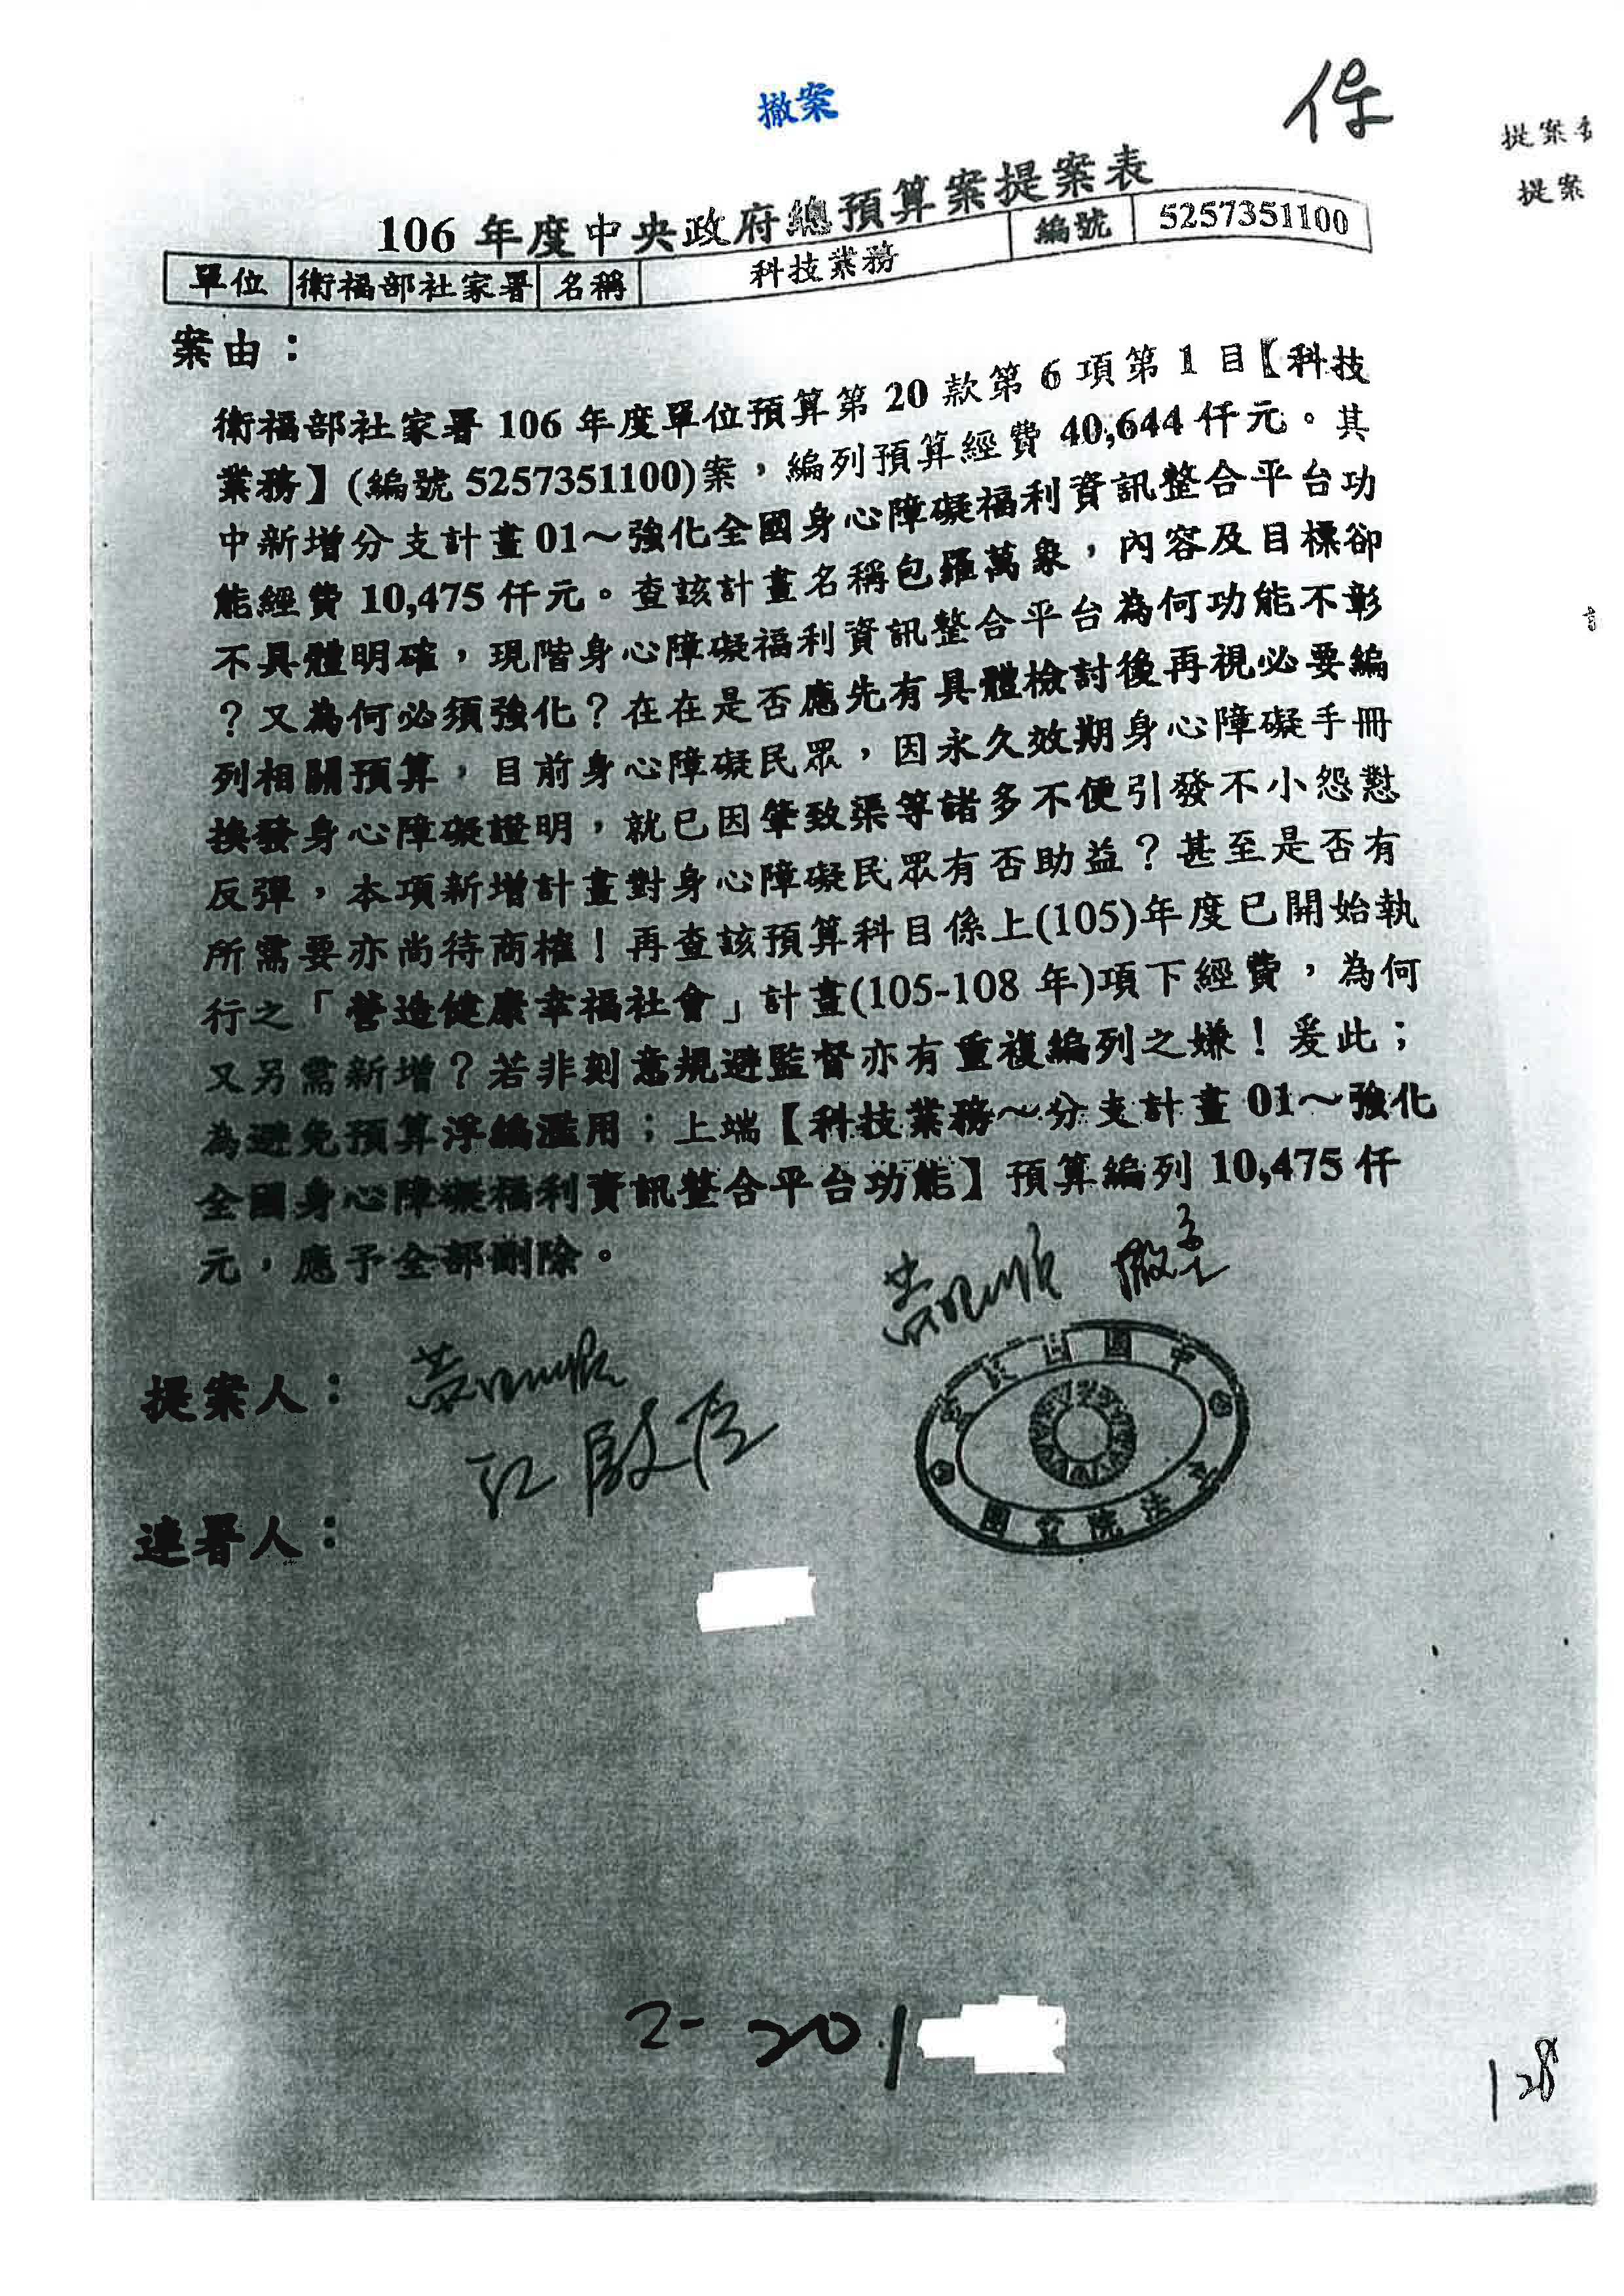 撤案
保
提案
提案
106 年度中央政府總預算案提案表
單位 衛福部社家署 名稱 科技業務 編號 5257351100
案由：
衛福部社家署 106 年度單位預算第 20 款第 6 項第 1 目【科技
業務】(編號 5257351100)案，編列預算經費 40,644 仟元。其
中新增分支計畫 01～強化全國身心障礙福利資訊整合平台功
能經費 10,475 仟元。查該計畫名稱包羅萬象，內容及目標卻
不具體明確，現階身心障礙福利資訊整合平台為何功能不彰
？又為何必須強化？在在是否應先有具體檢討後再視必要編
列相關預算，目前身心障礙民眾，因永久效期身心障礙手冊
換發身心障礙證明，就已因肇致渠等諸多不便引發不小怨懟
反彈，本項新增計畫對身心障礙民眾有否助益？甚至是否有
所需要亦尚待商榷！再查該預算科目係上(105)年度已開始執
行之「營造健康幸福社會」計畫(105-108 年)項下經費，為何
又另需新增？若非刻意規避監督亦有重複編列之嫌！爰此；
為避免預算浮編濫用；上端【科技業務～分支計畫 01～強化
全國身心障礙福利資訊整合平台功能】預算編列 10,475 仟
元，應予全部刪除。
黃昭順 撤案
提案人：黃昭順
江啟臣
中華民國立法院
連署人：
2-201
128